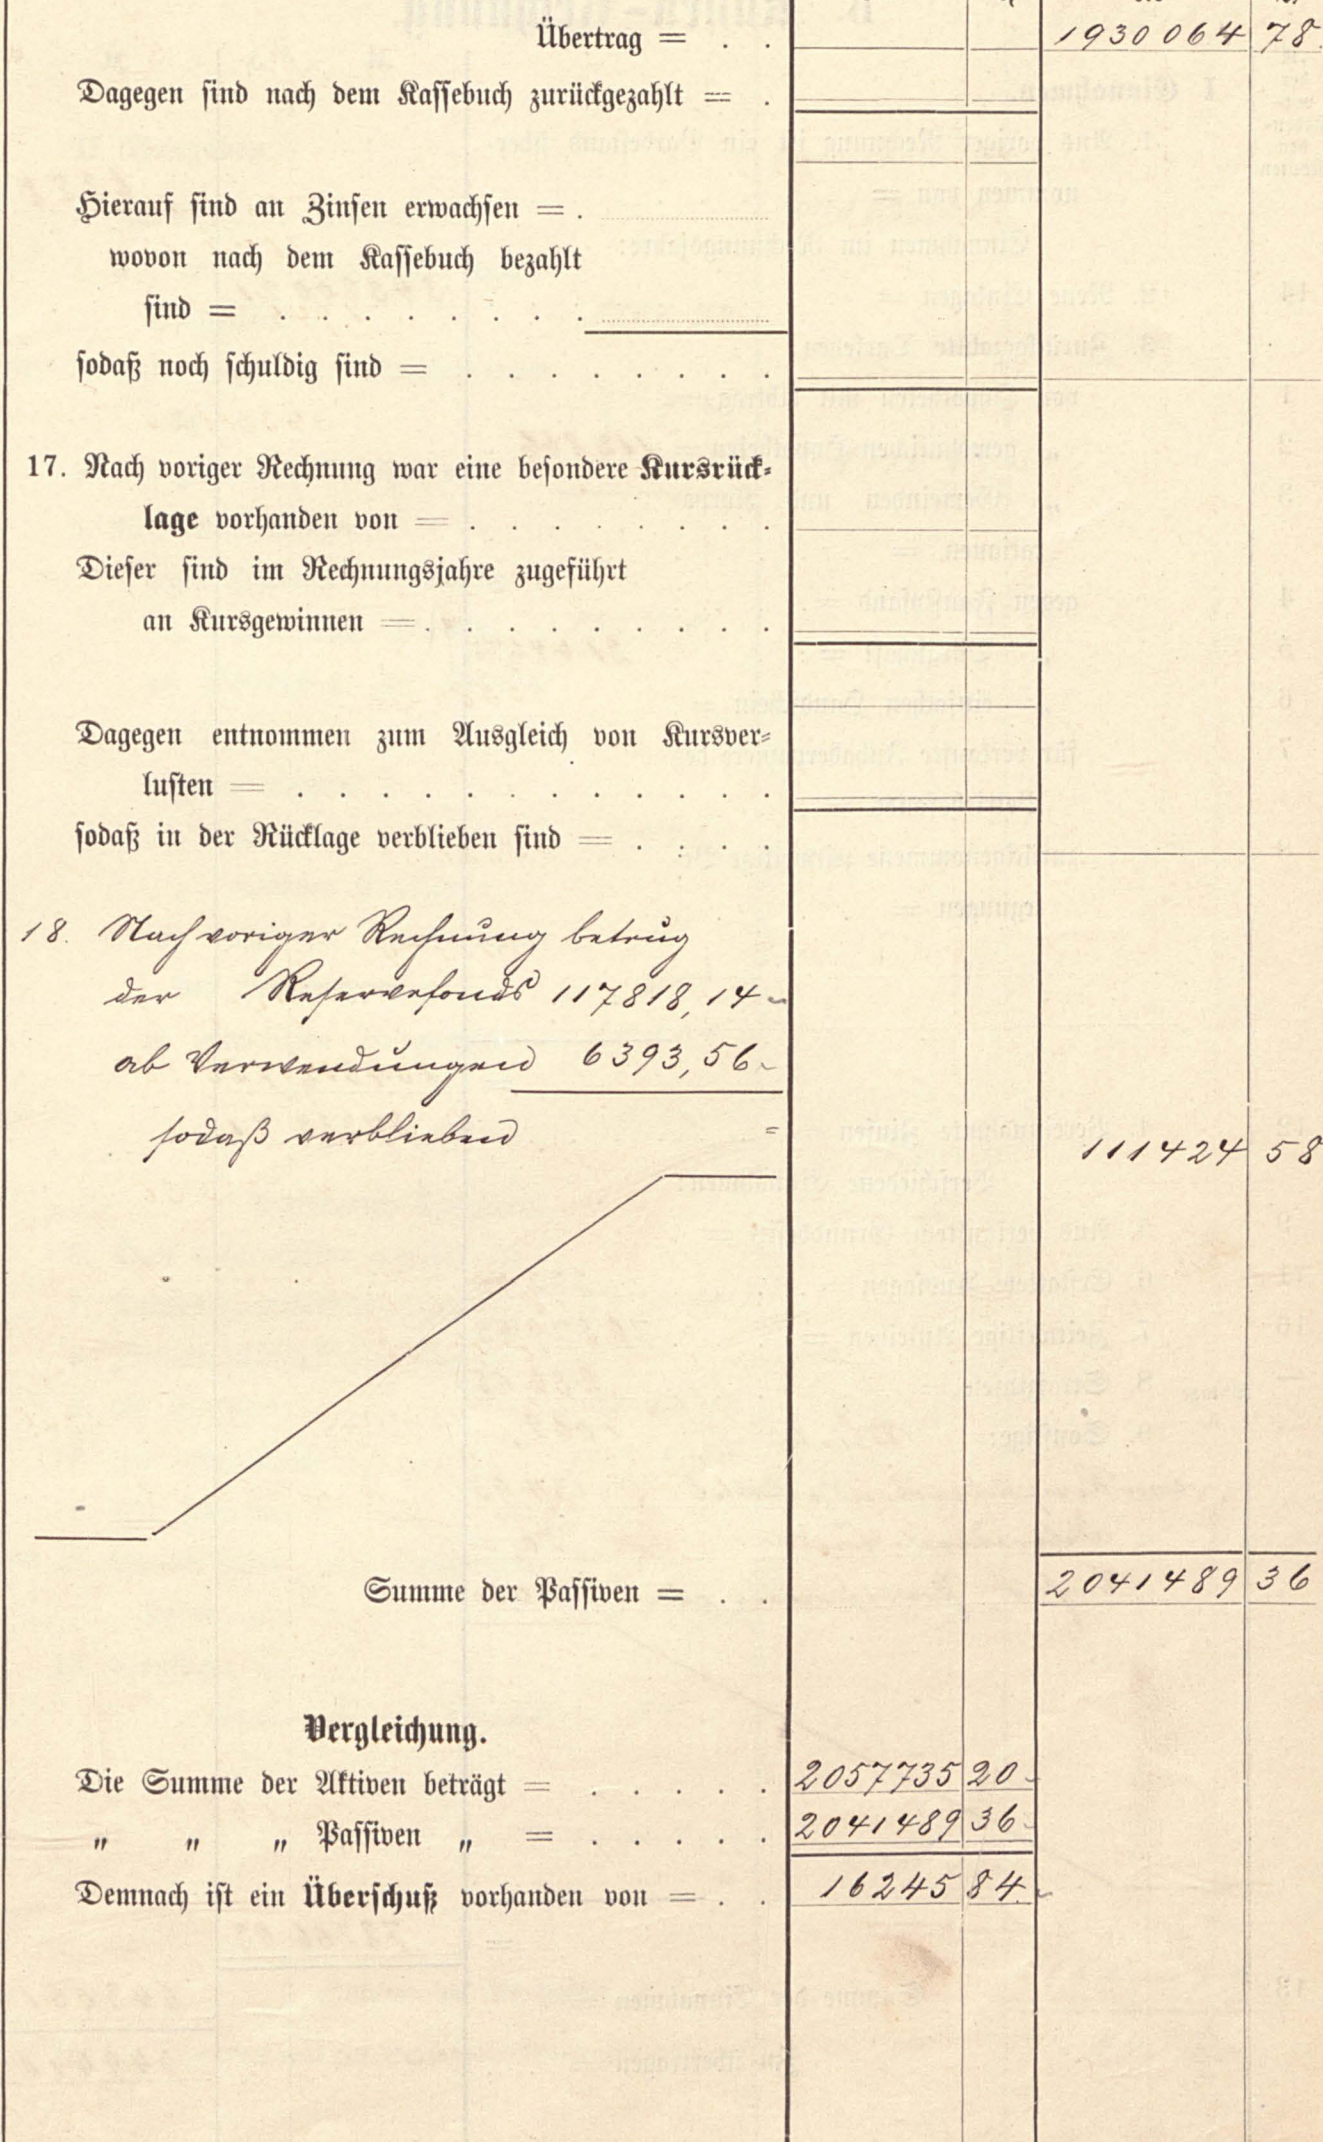 Übertrag = . . 1930064 78
Dagegen sind nach dem Kassebuch zurückgezahlt = .
Hierauf sind an Zinsen erwachsen = .
wovon nach dem Kassebuch bezahlt
sind = . . . . . . . .
sodaß noch schuldig sind = . . . . . . . .
17. Nach voriger Rechnung war eine besondere Kursrück-
lage vorhanden von = . . . . . . . .
Dieser sind im Rechnungsjahre zugeführt
an Kursgewinnen = . . . . . . . . .
Dagegen entnommen zum Ausgleich von Kursver-
lusten = . . . . . . . . . . . .
sodaß in der Rücklage verblieben sind = . . . .
18. Nach voriger Rechnung betrug
der Reservefonds 117818,14
ab Verwendungen 6393,56
sodaß verblieben = 111424 58
Summe der Passiven = . . 2041489 36
Vergleichung.
Die Summe der Aktiven beträgt = . . . . . 2057735 20
" " " Passiven " = . . . . . 2041489 36
Demnach ist ein Überschuß vorhanden von = . . 16245 84